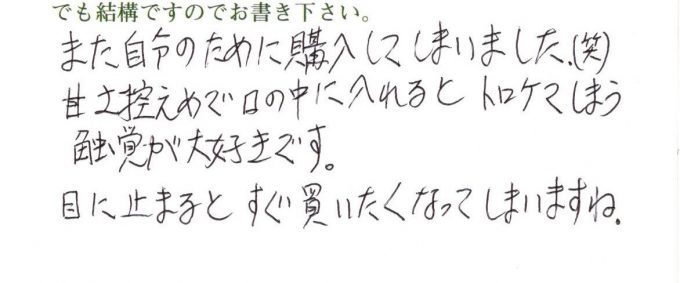 でも結構ですのでお書き下さい。
また自分のために購入してしまいました.(笑)
甘さ控えめで口の中に入れるとトロケてしまう
触覚が大好きです。
目に止まるとすぐ買いたくなってしまいますね.